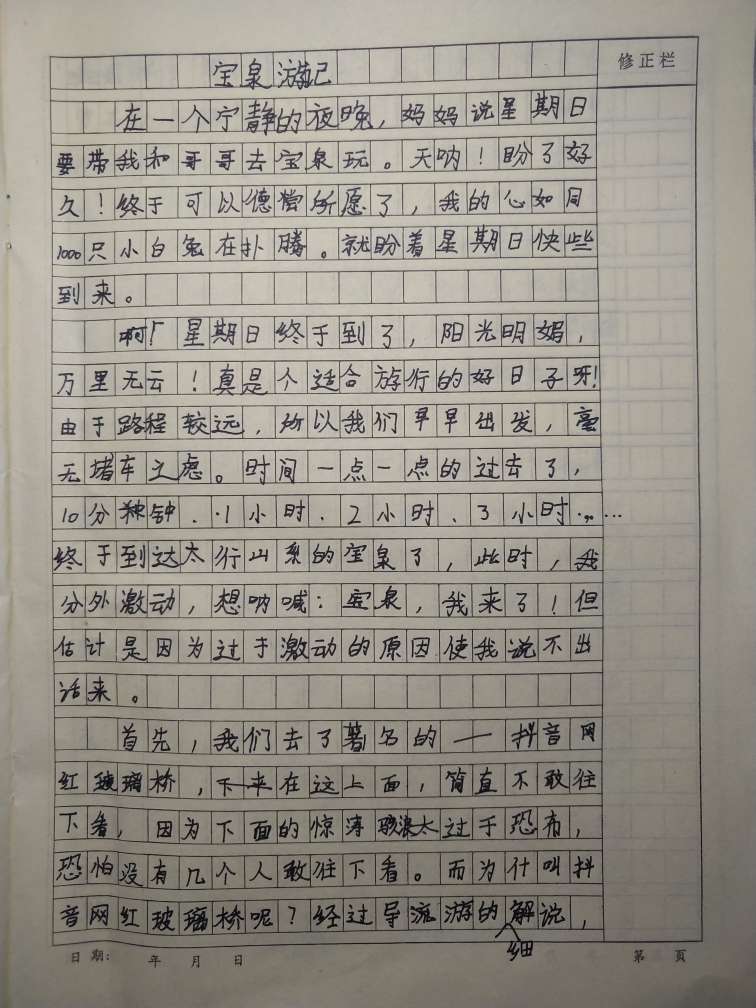 修正栏
宝泉游记
在一个宁静的夜晚，妈妈说星期日
要带我和哥哥去宝泉玩。天呐！盼了好
久！终于可以德偿所愿了，我的心如同
1000只小白兔在扑腾。就盼着星期日快些
到来。
啊！星期日终于到了，阳光明媚，
万里无云！真是个适合游行的好日子呀！
由于路程较远，所以我们早早出发，毫
无堵车之虑。时间一点一点的过去了，
10分钟、1小时、2小时、3小时……
终于到达太行山系的宝泉了，此时，我
分外激动，想呐喊：宝泉，我来了！但
估计是因为过于激动的原因使我说不出
话来。
首先，我们去了著名的——抖音网
红玻璃桥，下来在这上面，简直不敢往
下看，因为下面的惊涛骇浪太过于恐布，
恐怕没有几个人敢往下看。而为什叫抖
音网红玻璃桥呢？经过导流游的细解说，
日期： 年 月 日 第 页